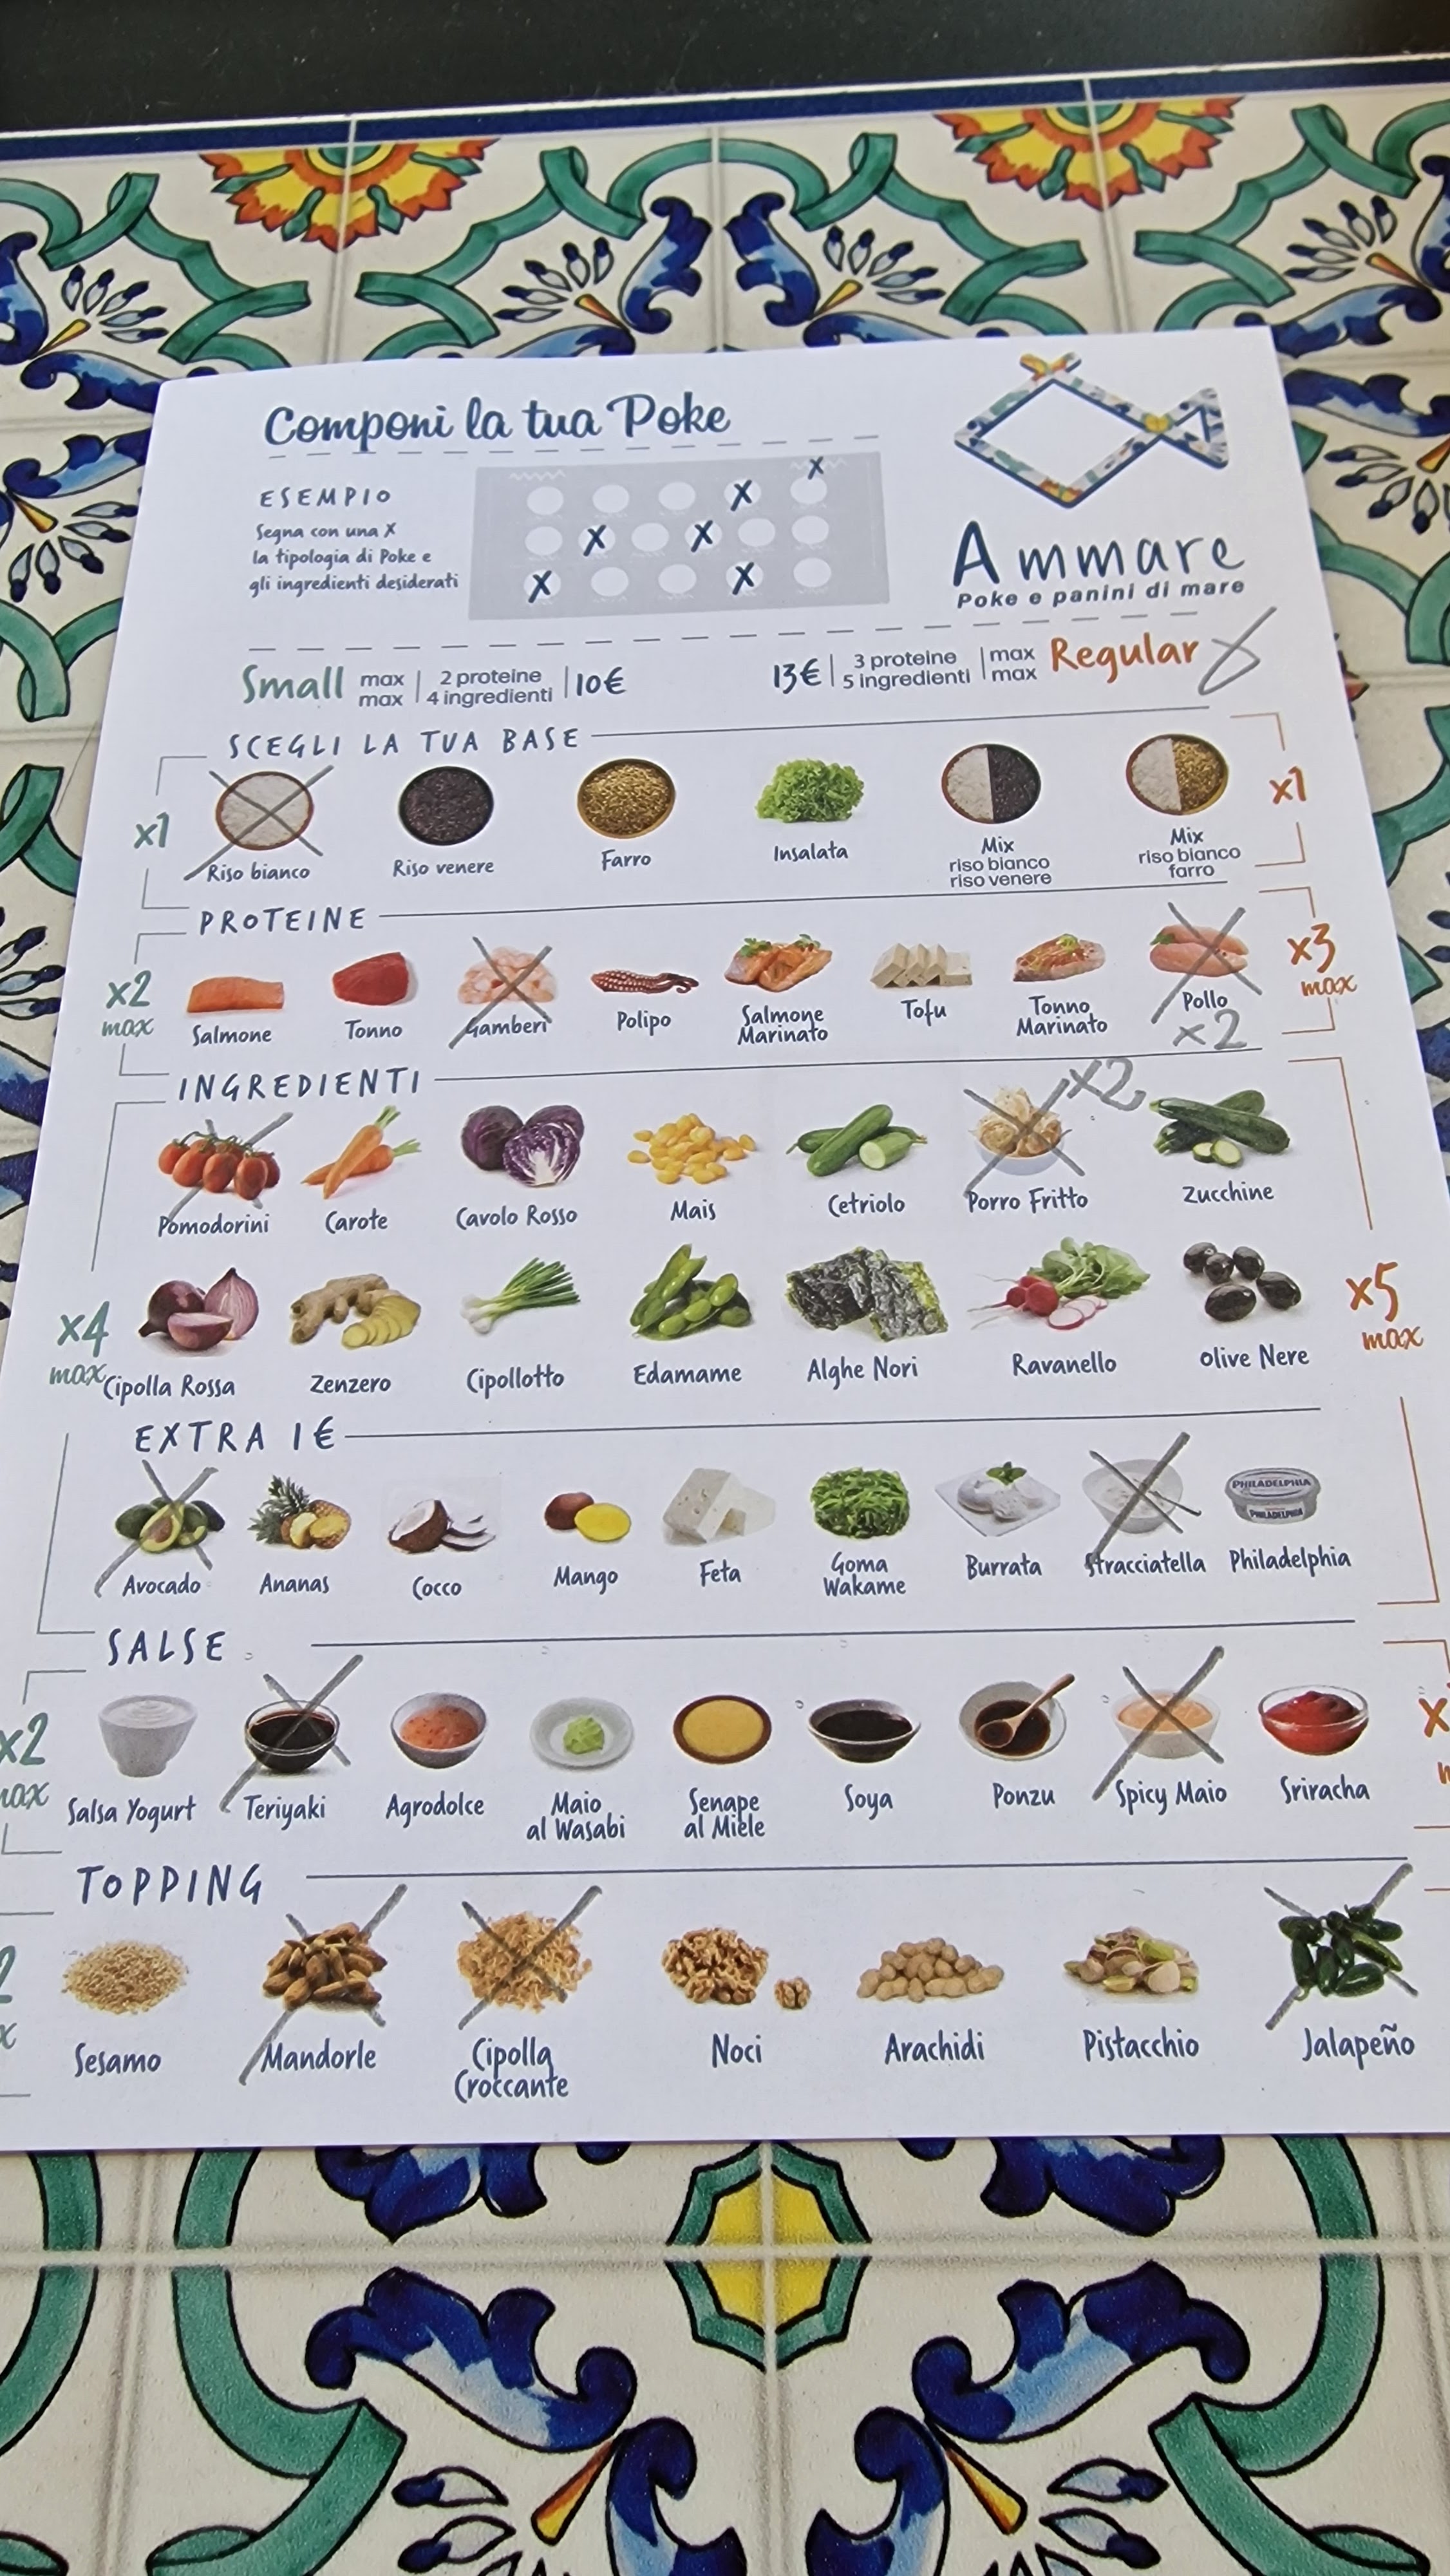 Componi la tua Poke
ESEMPIO
Segna con una X
la tipologia di Poke e
gli ingredienti desiderati
X
X
X
X
X
X
Ammare
Poke e panini di mare
Small max 2 proteine 10€
max 4 ingredienti
13€ 3 proteine max Regular
5 ingredienti max
SCEGLI LA TUA BASE
x1
Riso bianco
Riso venere
Farro
Insalata
Mix
riso bianco
riso venere
Mix
riso bianco
farro
x1
PROTEINE
x2
max
Salmone
Tonno
Gamberi
Polipo
Salmone
Marinato
Tofu
Tonno
Marinato
Pollo
x2
x3
max
INGREDIENTI
x2
Pomodorini
Carote
Cavolo Rosso
Mais
Cetriolo
Porro Fritto
Zucchine
x4
max
Cipolla Rossa
Zenzero
Cipollotto
Edamame
Alghe Nori
Ravanello
Olive Nere
x5
max
EXTRA 1€
Avocado
Ananas
Cocco
Mango
Feta
Goma
Wakame
Burrata
Stracciatella
PHILADELPHIA
PHILADELPHIA
Philadelphia
SALSE
x2
max
Salsa Yogurt
Teriyaki
Agrodolce
Maio
al Wasabi
Senape
al Miele
Soya
Ponzu
Spicy Maio
Sriracha
TOPPING
Sesamo
Mandorle
Cipolla
Croccante
Noci
Arachidi
Pistacchio
Jalapeño